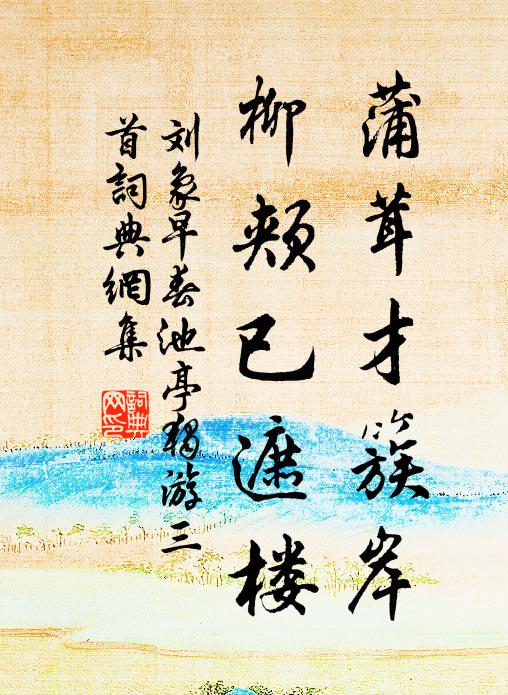 蒲茸才簇岸
柳颊已遮楼
刘象早春池亭独游三
首词典網集
詞典
网印